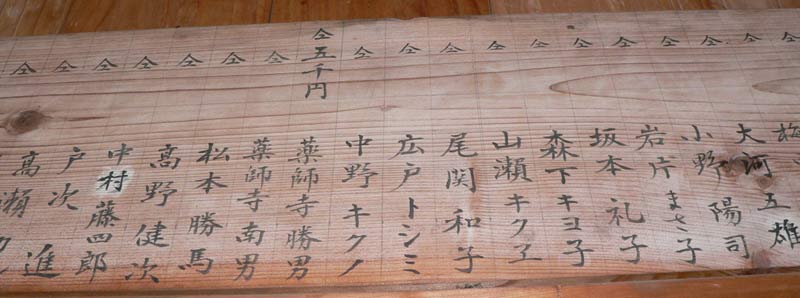 仝
仝 大河 五雄
仝 小野 陽司
仝 岩片 まさ子
仝 坂本 礼子
仝 森下 キヨ子
仝 山瀬 キクヱ
仝 尾関 和子
仝 広戸 トシミ
仝 中野 キクノ
仝五千円 薬師寺勝男
仝 薬師寺南男
仝 松本 勝馬
仝 高野 健次
仝 中村 藤四郎
仝 戸次 進
仝 高瀬